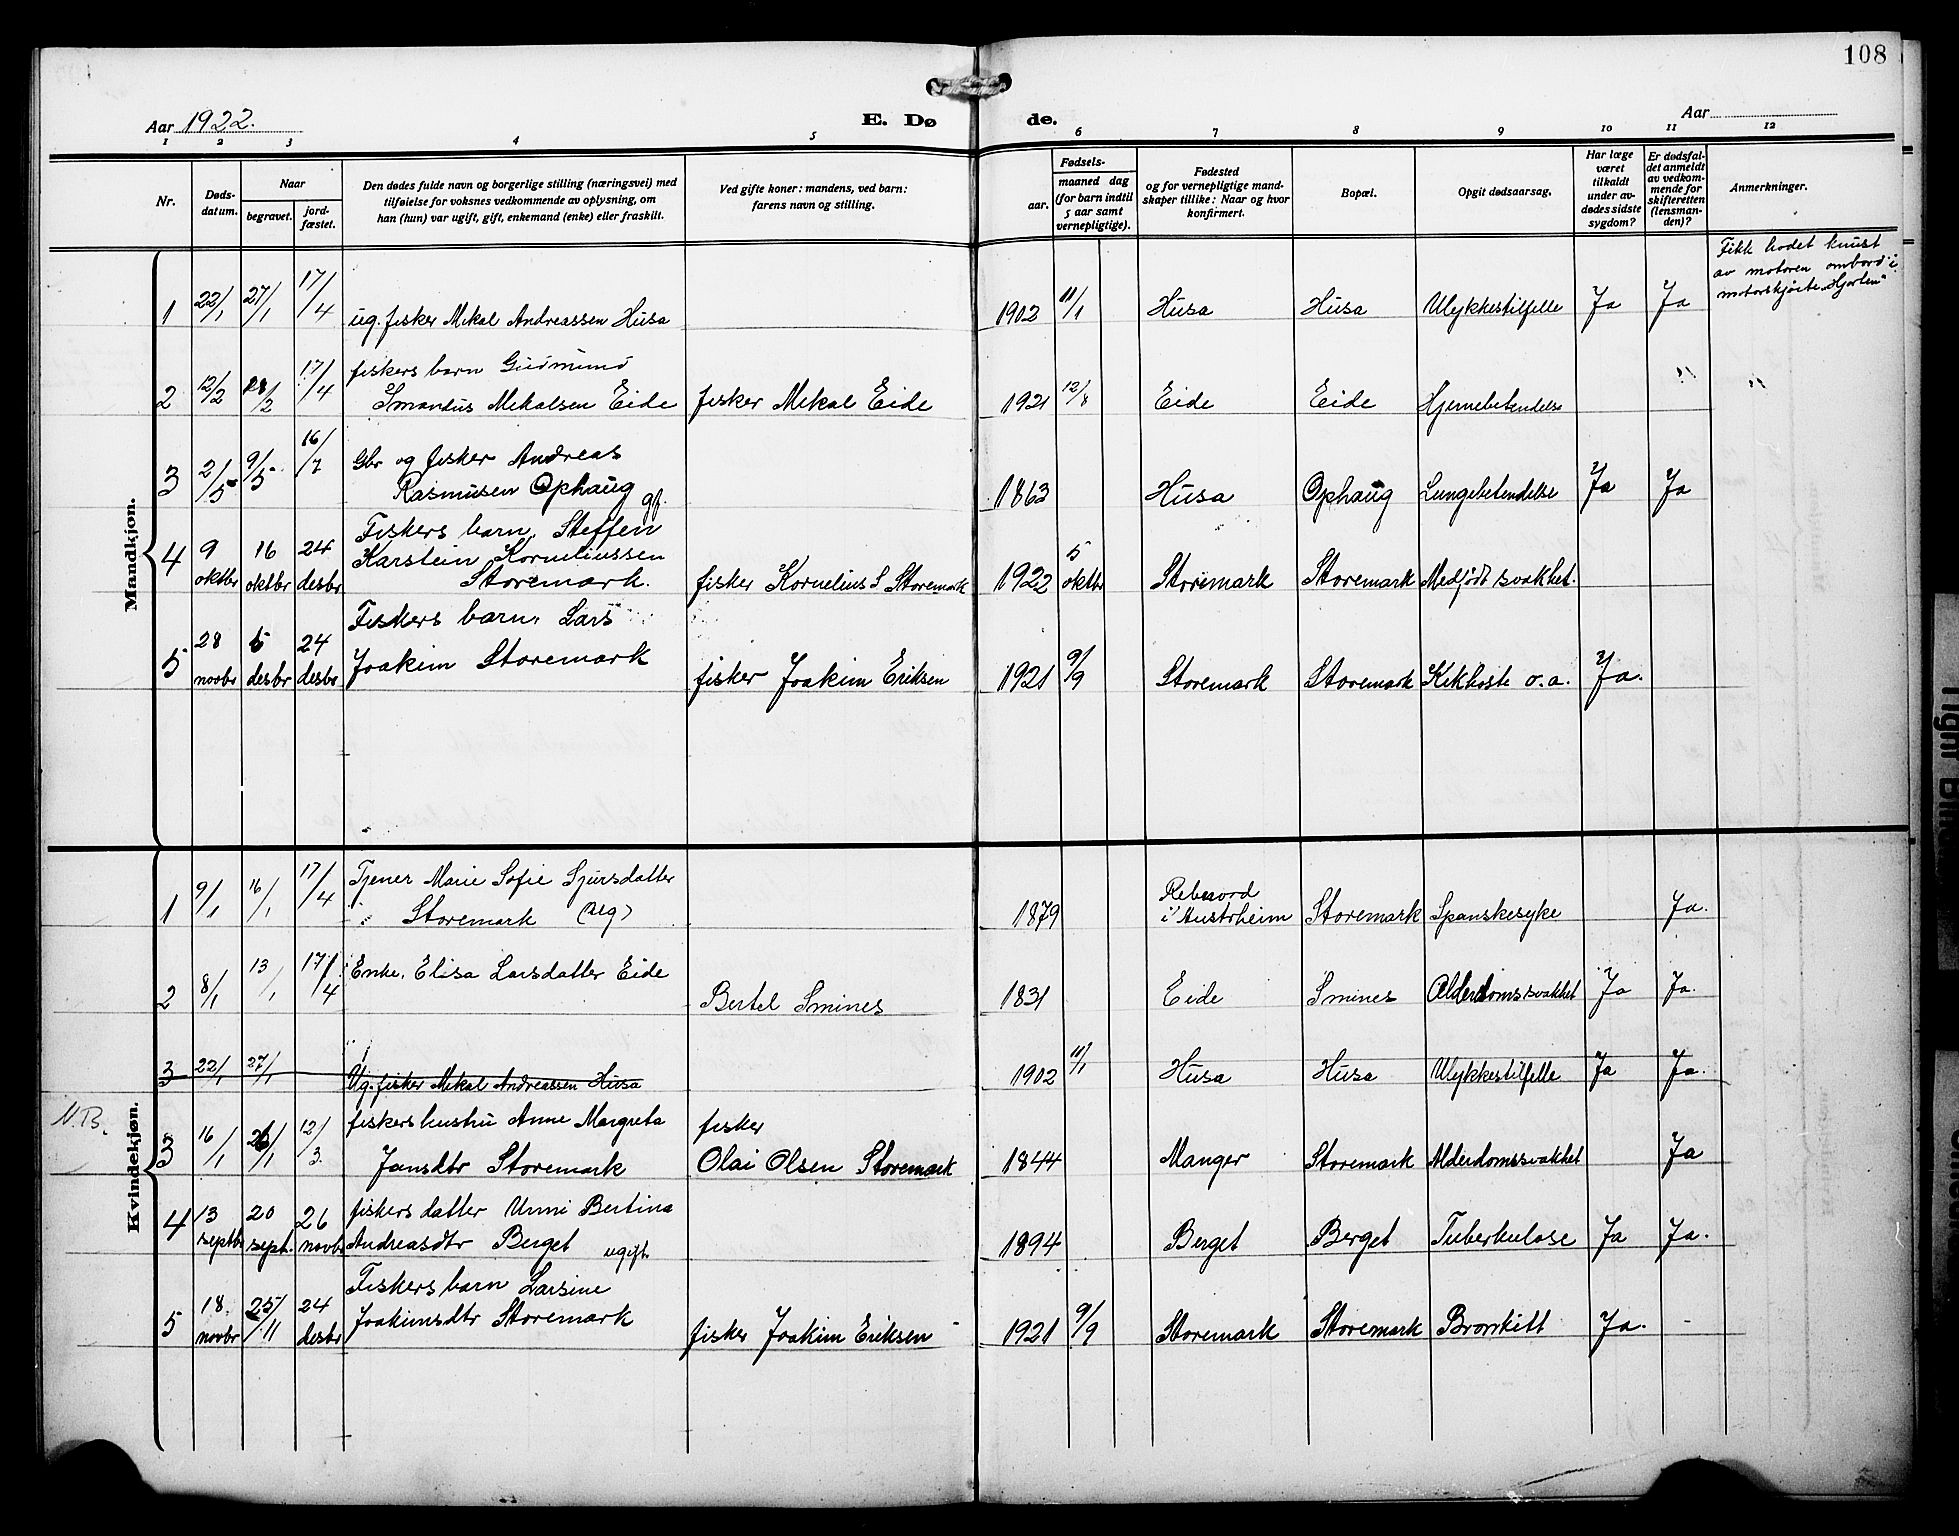 108
Aar 1922.
E. Dø de.
Aar
1 2 3 4 5 6 7 8 9 10 11 12
Nr.
Døds-
datum.
Naar
begravet.
jord-
fæstet.
Den dødes fulde navn og borgerlige stilling (næringsvei) med
tilføielse for voksnes vedkommende av oplysning, om
han (hun) var ugift, gift, enkemand (enke) eller fraskilt.
Ved gifte koner: mandens, ved barn:
farens navn og stilling.
Fødsels-
aar.
maaned dag
(for barn indtil
5 aar samt
vernepligtige).
Fødested
og for vernepligtige mand-
skaper tillike: Naar og hvor
konfirmert.
Bopæl.
Opgit dødsaarsag.
Har læge
været
tilkaldt
under av-
dødes sidste
sygdom?
Er dødsfal-
det anmeldt
av vedkom-
mende for
skifteretten
(lensman-
den)?
Anmerkninger.
Mandkjøn.
1 22/1 27/1 17/4 ug. fisker Mikal Andreassen Husa 1902 11/1 Husa Husa Ulykkestilfelle Ja Ja
Fikk hodet knust
av motoren ombord i
motorskjøite "Hjorten"
2 12/2 18/2 17/4 fiskers barn Gudmund
Smandus Mikalsen Eide fisker Mikal Eide 1921 12/8 Eide Eide Hjernebetendelse " "
3 2/5 9/5 16/7 Gbr og fisker Andreas
Rasmusen Ophaug gf 1863 Husa Ophaug Lungebetendelse Ja Ja
4 9 oktbr 16 oktbr 24 desbr Fiskers barn, Steffen
Karstein Korneliussen
Storemark. fisker Kornelius S Storemark 1922 5 oktbr Storemark Storemark Medfødt svakhet.
5 28 novbr 5 desbr 24 desbr Fiskers barn, Lars
Joakim Storemark fisker Joakim Eriksen 1921 9/9 Storemark Storemark Kikhoste o.a. Ja.
Kvindekjøn.
1 9/1 16/1 17/4 Tjener Marie Sofie Sjursdatter
Storemark (ug) 1879 Rebnord
i Austrheim Storemark Spanskesyke Ja.
2 8/1 13/1 17/4 Enke, Elisa Larsdatter Eide
Bertel Smines 1831 Eide Smines Alderdomssvakhet Ja Ja.
3 22/1 27/1 Ug. fisker Mikal Andreassen Husa 1902 11/1 Husa Husa Ulykkestilfelle Ja Ja.
N.B.
3 16/1 26/1 12/3 fiskers hustru Anne Margreta
Jansdtr Storemark fisker
Olai Olsen Storemark 1844 Manger Storemark Alderdomssvakhet Ja
4 13 septbr 20 sept. 26 novbr fiskers datter Unni Bertina
Andreasdtr Berget ugift. 1894 Berget Berget Tuberkulose Ja Ja.
5 18. novbr 25/11 24 desbr Fiskers barn Larsine
Joakimsdtr Storemark fisker Joakim Eriksen 1921 9/9 Storemark Storemark Bronkitt Ja. -